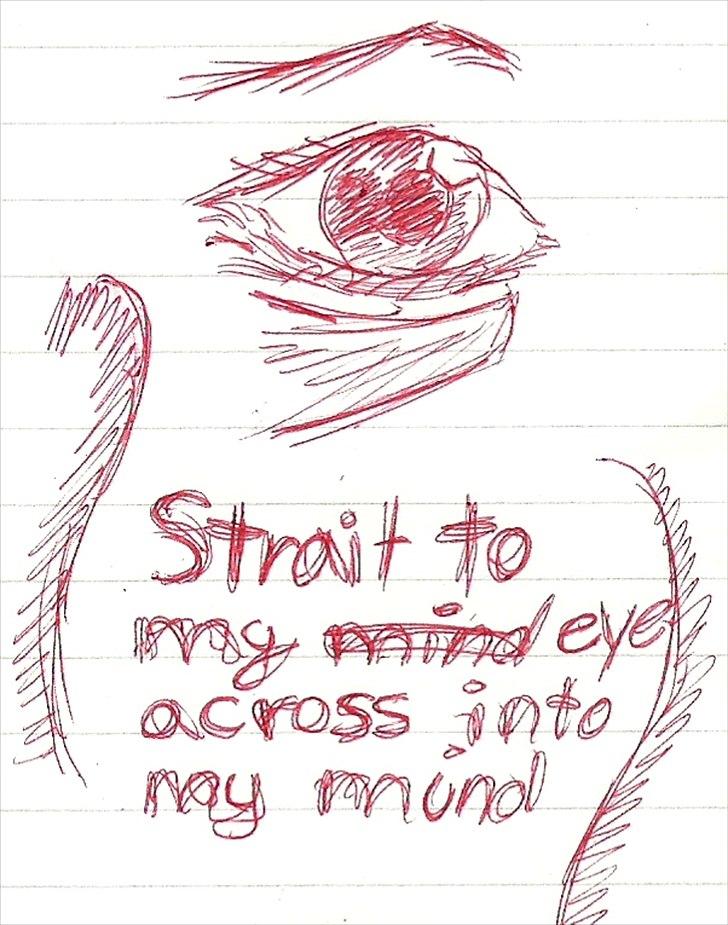 Strait to
my mind eye
across into
my mind